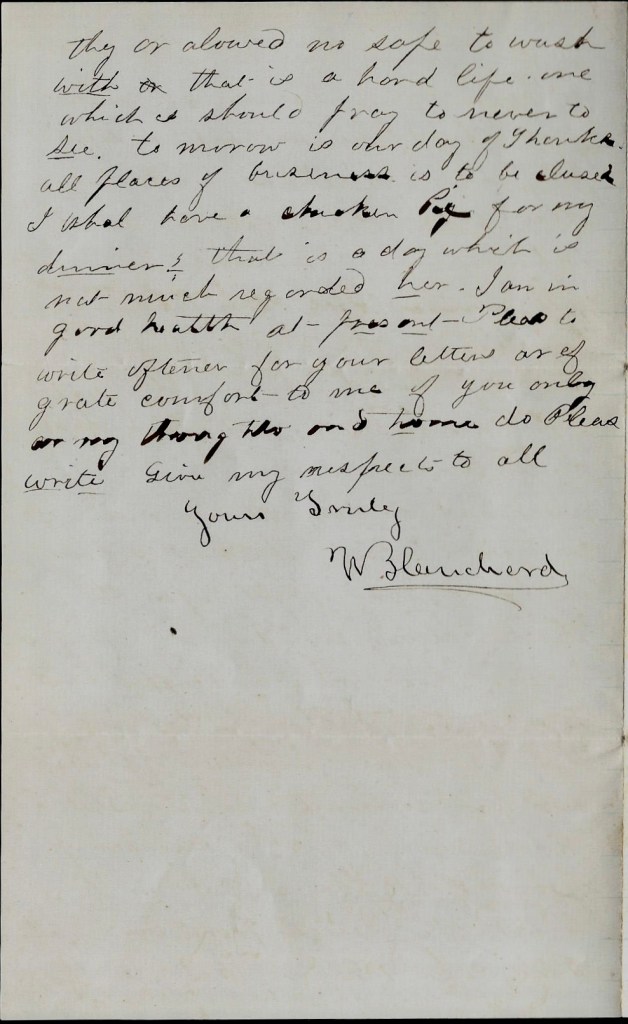 thy or alowed no sope to wash
with or that is a hard life. one
which I should pray to never to
see. to morow is our day of Thanks.
all places of business is to be closed
I shal have a chicken Pie for my
dinner; that is a day which is
not much regarded her. I am in
good health at present Pleas to
write oftener for your letters ar of
grate comfort to me of you only
ar my thoughts and home do Pleas
write Give my respects to all
Yours Truly
W Blanchard